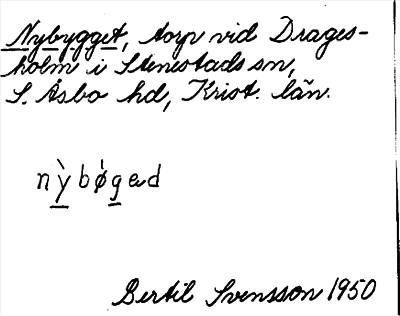 Nybygget, torp vid Drages-
holm i Stenestads sn,
S. Åsbo hd, Krist. län.
nỳbøgəd
Bertil Svensson 1950